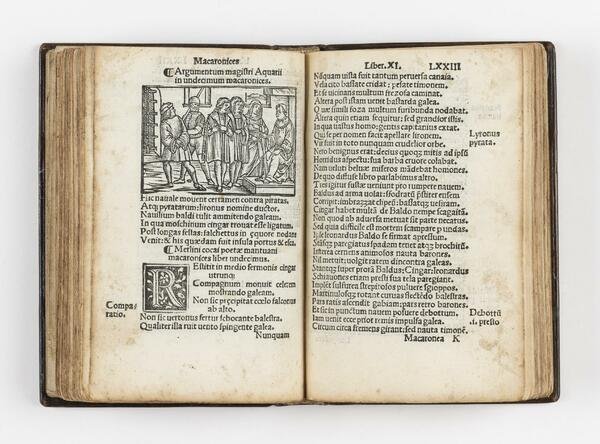 Macaronices
¶Argumentum magistri Aquarii
in undecimum macaronices.
Hic navale movent certamen contra piratas
Atqȝ pyratarum: lironus nomine ductor.
Nausilium baldi tulit ammitendo galeam.
In qua moschinum cingar trovat esse ligatum.
Post longas festas: falchettus in equore nodans
Venit: & his quædam fuit insula portus & esca.
¶Merlini cocai poetæ mantuani
macaronices liber undecimus.
REstitit in medio sermonis cingar
utrunqȝ
Compagnum monuit celsem
mostrando galeam.
Non sic præcipitat cœlo falconus
ab alto.
Compa-
ratio.
Non sic vertonus fertur schocante balestra.
Qualiter illa ruit vento spingente galea.
Nunquam
Liber.XI. LXXIII
Nũquam vista fuit tantum perversa canaia.
Vela cito bassate cridat: pesate timonem.
Et se vicinans multum frezosa caminat.
Altera post istam venit bastarda galea.
Quæ simili foza multum furibunda nodabat.
Altera quin etiam sequitur: sed grandior istis.
In qua vastus homo: gentis capitanius extat.
Qui se per nomen facit apellare lironem.
Lyronus
pyrata.
Vir fuit in toto nunquam crudelior orbe.
Neto benignus erat: decius quoqȝ mitis ad ipsũ
Horridus aspectu: sua barba cruore colabat.
Nam veluti beluæ miseros mãdebat homones.
De quo diffuse libro parlabimus altro.
Tres igitur fustæ veniunt pro rumpere navem.
Baldus ad arma volat: sfodratũ fistitur ensem
Corripit: imbrazzat clipeũ: bastatqȝ vesiram.
Cingar habet multã de Baldo nempe scagaitã.
Non quod ab adversa metuat sit parte necatus.
Sed quia difficile est mortem scampare p undas.
Is &leonardus Baldo se firmat apressum.
Stãtqȝ paregiatus spadam tenet atqȝ brochirũ.
Interea cernens animoso nauta barones.
Nil metuit: volgit ratem dincontra galeas.
Stantqȝ super prorã Baldus: Cingar: leonardus
Schiavones etiam presti sua tela paregiant.
Implẽt sulfurea stepitosos pulvere sgioppos.
Martinulosqȝ rotant curvas flectẽdo balestras.
Pars ratis ascendit gabiam: pars retro barones.
Et se in punctum navem posuere debottum.
Debottũ
.i. presto
Iam venit ecce prior remis impulsa galea.
Circum circa fremens girant: sed nauta timonẽ.
Macaronea K